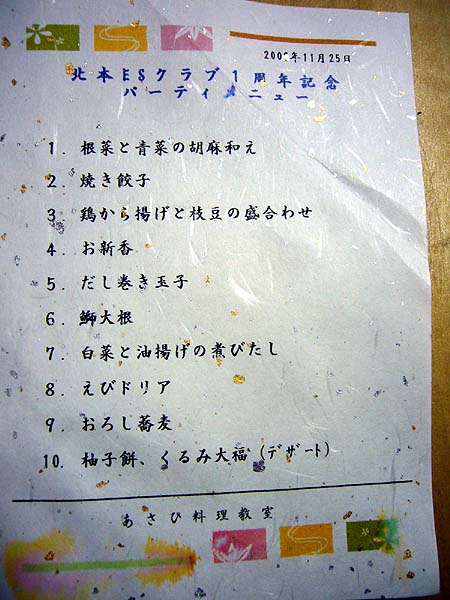 年11月25日
北本ESクラブ1周年記念
パーティメニュー
1. 根菜と青菜の胡麻和え
2. 焼き餃子
3. 鶏から揚げと枝豆の盛合わせ
4. お新香
5. だし巻き玉子
6. 鰤大根
7. 白菜と油揚げの煮びたし
8. えびドリア
9. おろし蕎麦
10. 柚子餅、くるみ大福(デザート)
あさひ料理教室